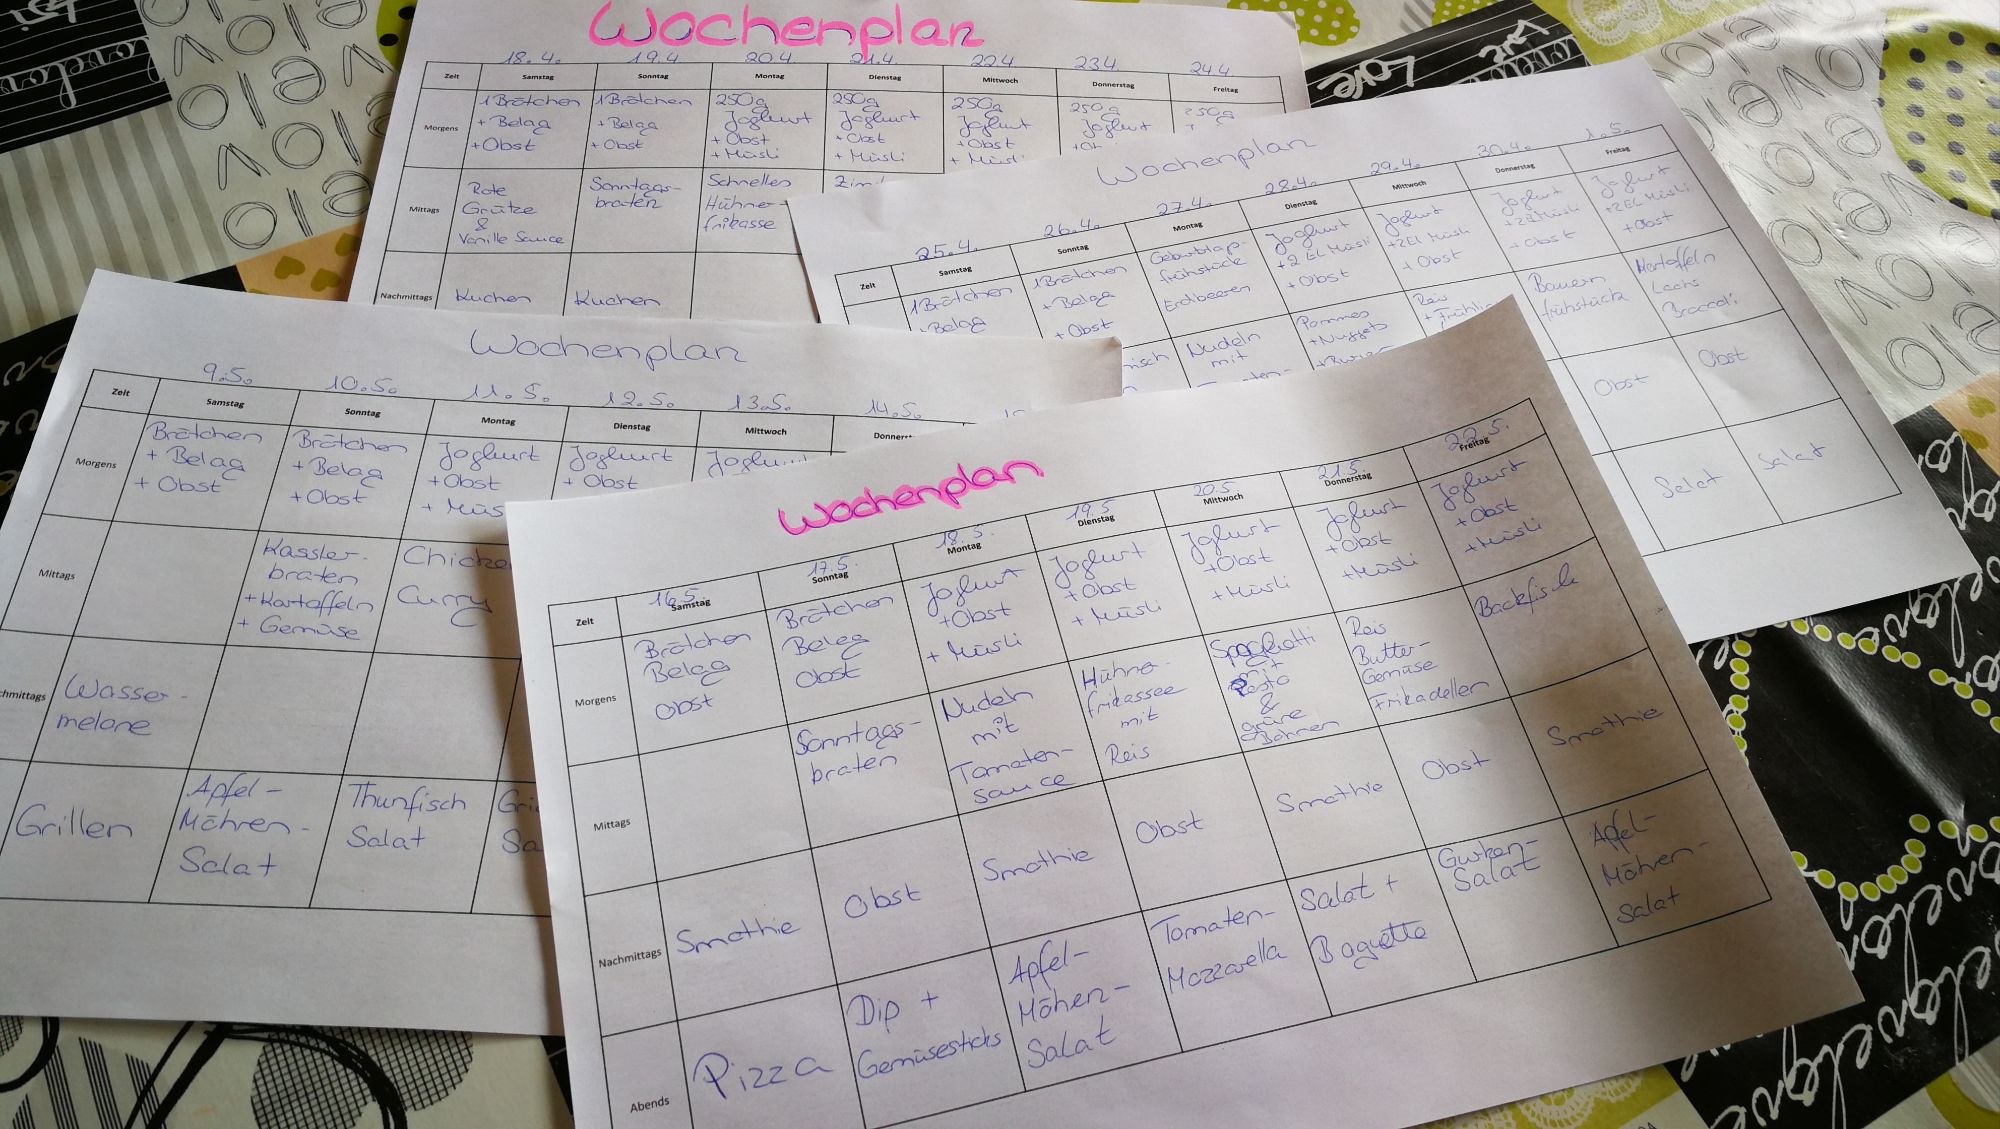 Wochenplan
18.4. 19.4 20.4 21.4. 22.4 23.4 24.4
Zeit Samstag Sonntag Montag Dienstag Mittwoch Donnerstag Freitag
Morgens
1 Brötchen
+ Belag
+ Obst
1 Brötchen
+ Belag
+ Obst
250g
Joghurt
+ Obst
+ Müsli
250g
Joghurt
+ Obst
+ Müsli
250g
Joghurt
+ Obst
+ Müsli
250g
Joghurt
250g
Mittags
Rote
Grütze
&
Vanille Sauce
Sonntags-
braten
Schnelles
Hühner-
frikasse
Nachmittags
Kuchen
Kuchen
Wochenplan
25.4. 26.4. 27.4. 28.4. 29.4. 30.4. 1.5.
Zeit Samstag Sonntag Montag Dienstag Mittwoch Donnerstag Freitag
1 Brötchen
+ Belag
1 Brötchen
+ Belag
+ Obst
Geburtstag-
frühstück
Erdbeeren
Joghurt
+ 2 EL Müsli
+ Obst
Joghurt
+ 2 EL Müsli
+ Obst
Joghurt
+ 2 EL Müsli
+ Obst
Joghurt
+ 2 EL Müsli
+ Obst
Nudeln
mit
Pommes
+ Nuggets
Reis
Bauern
frühstück
Kartoffeln
Lachs
Broccoli
Obst
Obst
Salat
Salat
Wochenplan
9.5. 10.5. 11.5. 12.5. 13.5. 14.5.
Zeit Samstag Sonntag Montag Dienstag Mittwoch
Morgens
Brötchen
+ Belag
+ Obst
Brötchen
+ Belag
+ Obst
Joghurt
+ Obst
+ Müs
Joghurt
+ Obst
Mittags
Kassler-
braten
+ Kartoffeln
+ Gemüse
Chicke
Curry
chmittags
Wasser-
melone
Grillen
Apfel-
Möhren-
Salat
Thunfisch
Salat
Wochenplan
16.5. 17.5. 18.5. 19.5 20.5 21.5. 22.5.
Zeit Samstag Sonntag Montag Dienstag Mittwoch Donnerstag Freitag
Morgens
Brötchen
Belag
Obst
Brötchen
Belag
Obst
Joghurt
+ Obst
+ Müsli
Joghurt
+ Obst
+ Müsli
Joghurt
+ Obst
+ Müsli
Joghurt
+ Obst
+ Müsli
Joghurt
+ Obst
+ Müsli
Mittags
Sonntags-
braten
Nudeln
mit
Tomaten-
sauce
Hühner-
frikassee
mit
Reis
Spaghetti
mit
Pesto
&
grüne
Bohnen
Reis
Butter-
Gemüse
Frikadellen
Backfisch
Nachmittags
Smothie
Obst
Smothie
Obst
Smothie
Obst
Smothie
Abends
Pizza
Dip +
Gemüsesticks
Apfel-
Möhen-
Salat
Tomaten-
Mozzarella
Salat +
Baguette
Gurken-
Salat
Apfel-
Möhren-
Salat
Love